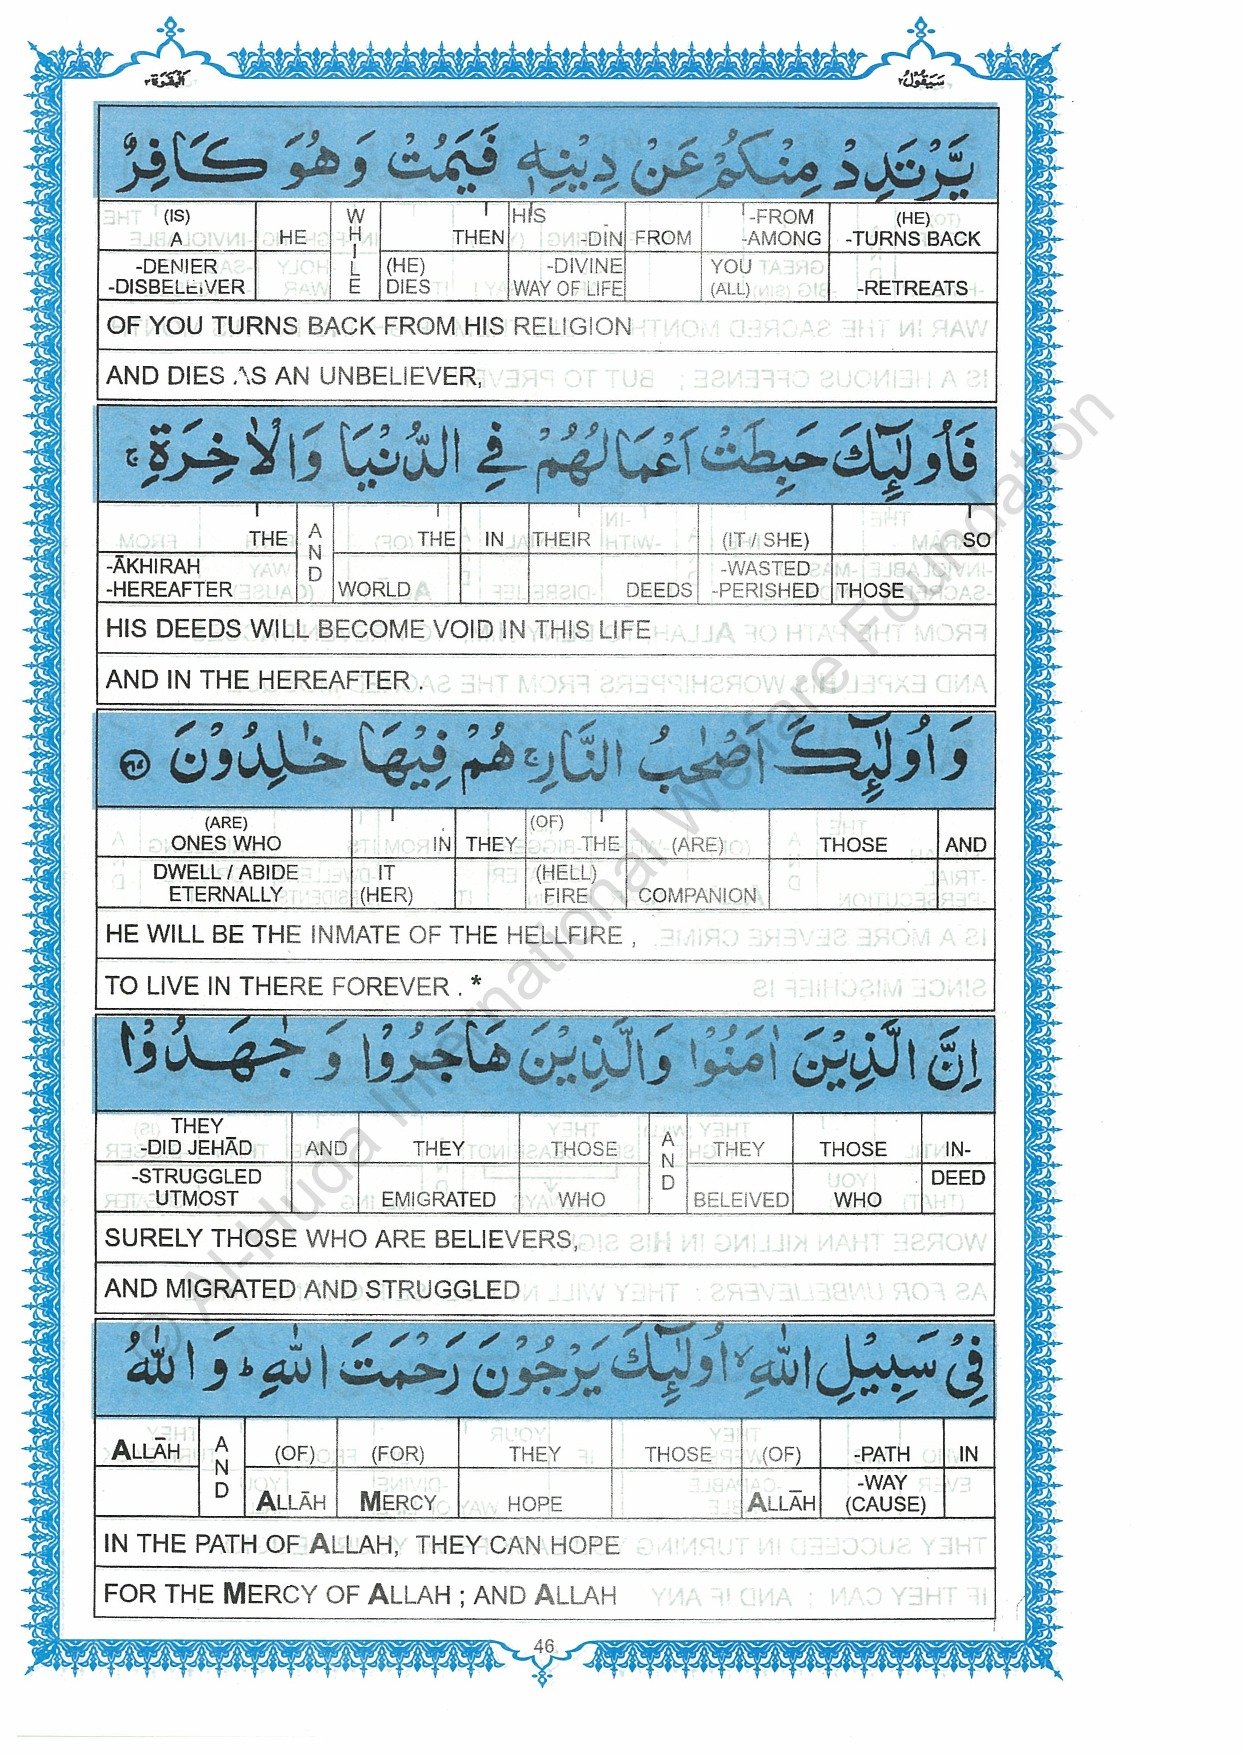 البقرة ٢
سيقول ٢
يَّرْتَدِدْ مِنْكُمْ عَنْ دِيْنِهٖ فَيَمُتْ وَهُوَ كَافِرٌ
(IS) HIS -FROM (HE)
A HE WHILE THEN -DĪN FROM -AMONG -TURNS BACK
-DENIER (HE) -DIVINE YOU
-DISBELEIVER DIES WAY OF LIFE (ALL) -RETREATS
OF YOU TURNS BACK FROM HIS RELIGION
AND DIES AS AN UNBELIEVER,
فَاُولٰٓئِكَ حَبِطَتْ اَعْمَالُهُمْ فِي الدُّنْيَا وَالْاٰخِرَةِ ج
THE AND THE IN THEIR (IT / SHE) SO
-ĀKHIRAH -WASTED
-HEREAFTER WORLD DEEDS -PERISHED THOSE
HIS DEEDS WILL BECOME VOID IN THIS LIFE
AND IN THE HEREAFTER .
وَاُولٰٓئِكَ اَصْحٰبُ النَّارِ ج هُمْ فِيْهَا خٰلِدُوْنَ
(ARE) (OF)
ONES WHO IN THEY THE (ARE) THOSE AND
DWELL / ABIDE IT (HELL)
ETERNALLY (HER) FIRE COMPANION
HE WILL BE THE INMATE OF THE HELLFIRE ,
TO LIVE IN THERE FOREVER . *
اِنَّ الَّذِيْنَ اٰمَنُوْا وَالَّذِيْنَ هَاجَرُوْا وَ جٰهَدُوْا
THEY
-DID JEHĀD AND THEY THOSE AND THEY THOSE IN-
-STRUGGLED DEED
UTMOST EMIGRATED WHO BELEIVED WHO
SURELY THOSE WHO ARE BELIEVERS,
AND MIGRATED AND STRUGGLED
فِيْ سَبِيْلِ اللّٰهِ لا اُولٰٓئِكَ يَرْجُوْنَ رَحْمَتَ اللّٰهِ ط وَ اللّٰهُ
ALLĀH AND (OF) (FOR) THEY THOSE (OF) -PATH IN
-WAY
ALLĀH MERCY HOPE ALLĀH (CAUSE)
IN THE PATH OF ALLAH, THEY CAN HOPE
FOR THE MERCY OF ALLAH ; AND ALLAH
46
© Al-Huda International Welfare Foundation